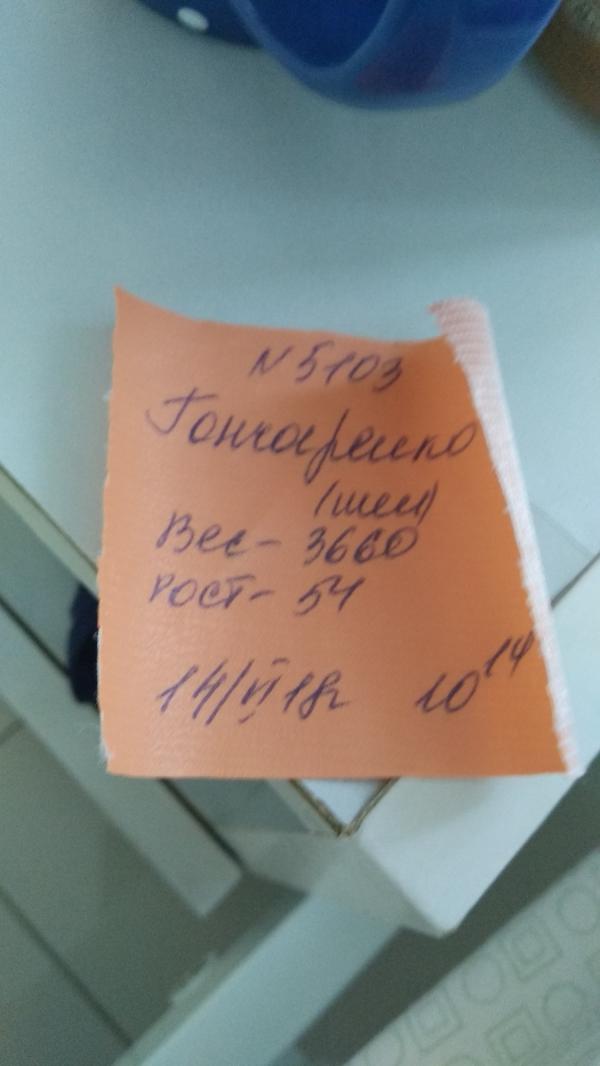 N 5103
Гончаренко
(жен)
Вес - 3660
Рост - 54
14/VI 18г 10 14